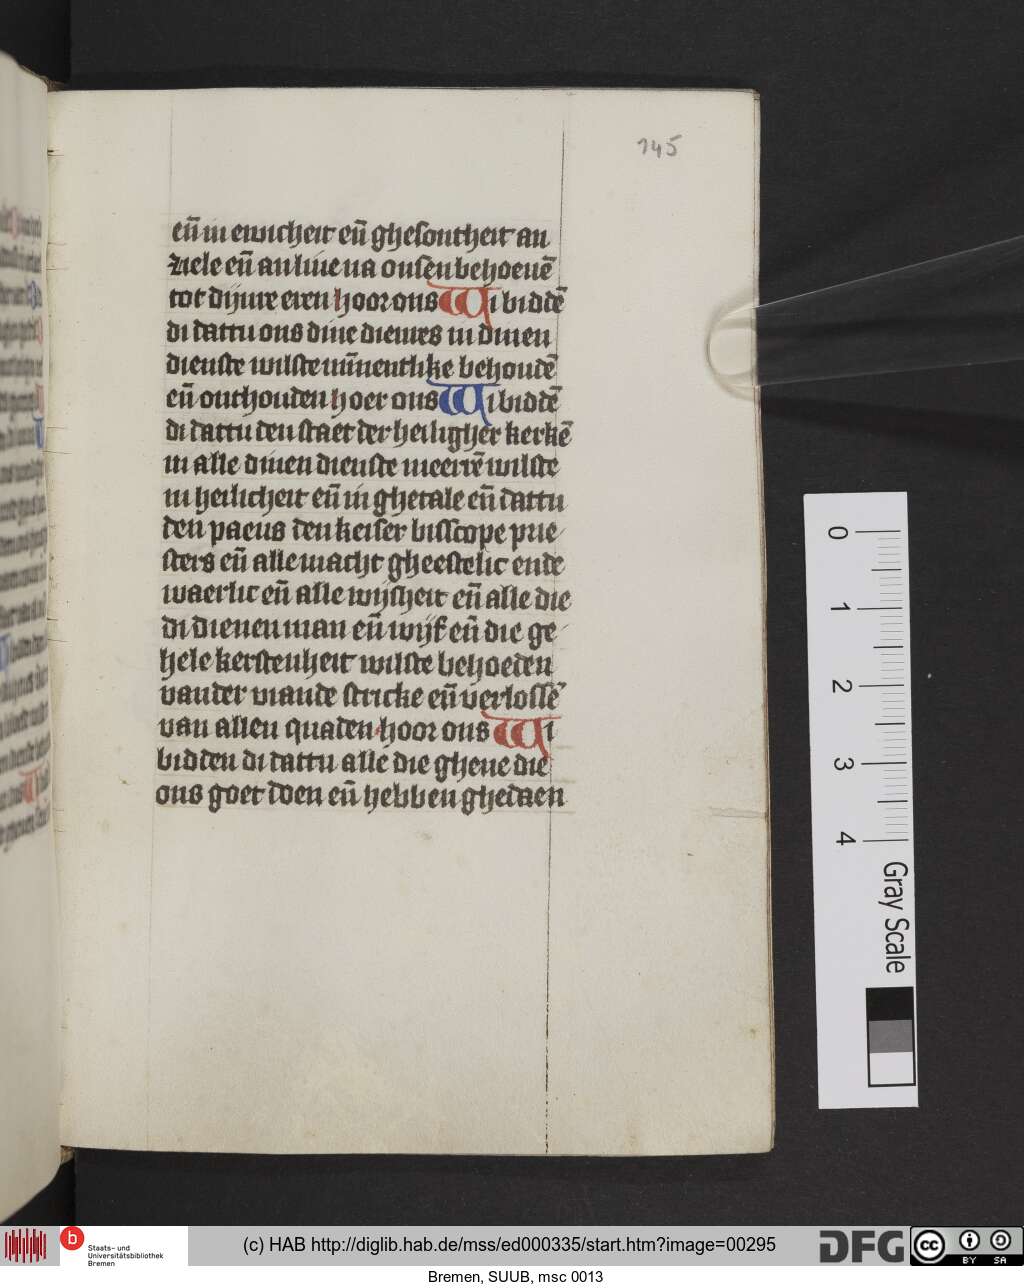 145
eñ in ewicheit eñ ghesontheit an
ziele eñ an live na onsen behoevē
tot dijnre eren hoor ons Wi biddē
di dattu ons dine dienres in dinen
dienste wilste minnentlike behoudē
eñ onthouden hoer ons Wi biddē
di dattu den staet der heiligher kerkē
in alle dinen dienste meerrē wilste
in heilicheit eñ in ghetale eñ dattu
den paeus den keiser bisscope prie
sters eñ alle macht gheestelic ende
waerlic eñ alle wijsheit eñ alle die
di dienen man eñ wijf eñ die ge
hele kerstenheit wilste behoeden
vander viande stricke eñ verlossē
van allen quaden hoor ons Wi
bidden di dattu alle die ghene die
ons goet doen eñ hebben ghedaen
0
1
2
3
4
Gray Scale
b Staats- und
Universitätsbibliothek
Bremen
(c) HAB http://diglib.hab.de/mss/ed000335/start.htm?image=00295
DFG
cc BY SA
Bremen, SUUB, msc 0013